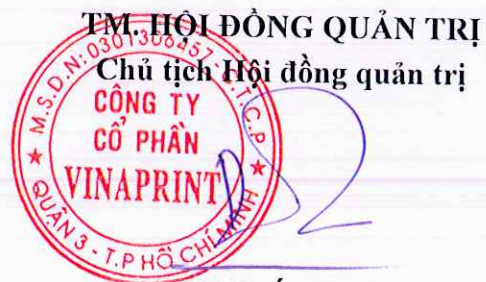 TM. HỘI ĐỒNG QUẢN TRỊ
Chủ tịch Hội đồng quản trị
M.S.D.N: 0301306457 - C.T.C.P
CÔNG TY
CỔ PHẦN
VINAPRINT
QUẬN 3 - T.P HỒ CHÍ MINH